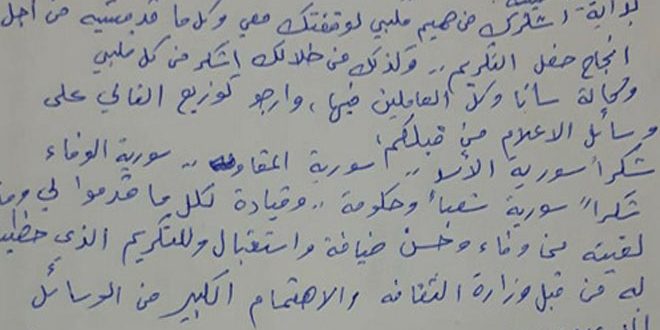 بداية أشكرك من صميم قلبي لوقفتك معي وكل ما قدمتيه من أجل
انجاح حفل التكريم .. وكذلك من خلالك أشكر من كل قلبي
وكالة سانا وكل العاملين فيها، وارجو توزيع التالي على
وسائل الاعلام من قبلكم:
شكراً سورية الأسد .. سورية المقاومة .. سورية الوفاء
شكراً سورية شعباً وحكومة .. وقيادة لكل ما قدموا لي وما
لقيته من وفاء وحسن ضيافة واستقبال وللتكريم الذي حظيت
به من قبل وزارة الثقافه والاهتمام الكبير من الوسائل